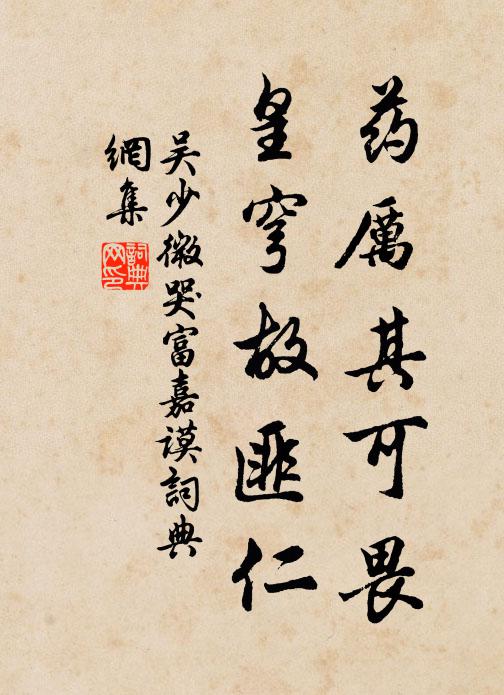 药厲其可畏
皇穹故匪仁
吴少微哭富嘉谟詞典
網集
詞典
网印